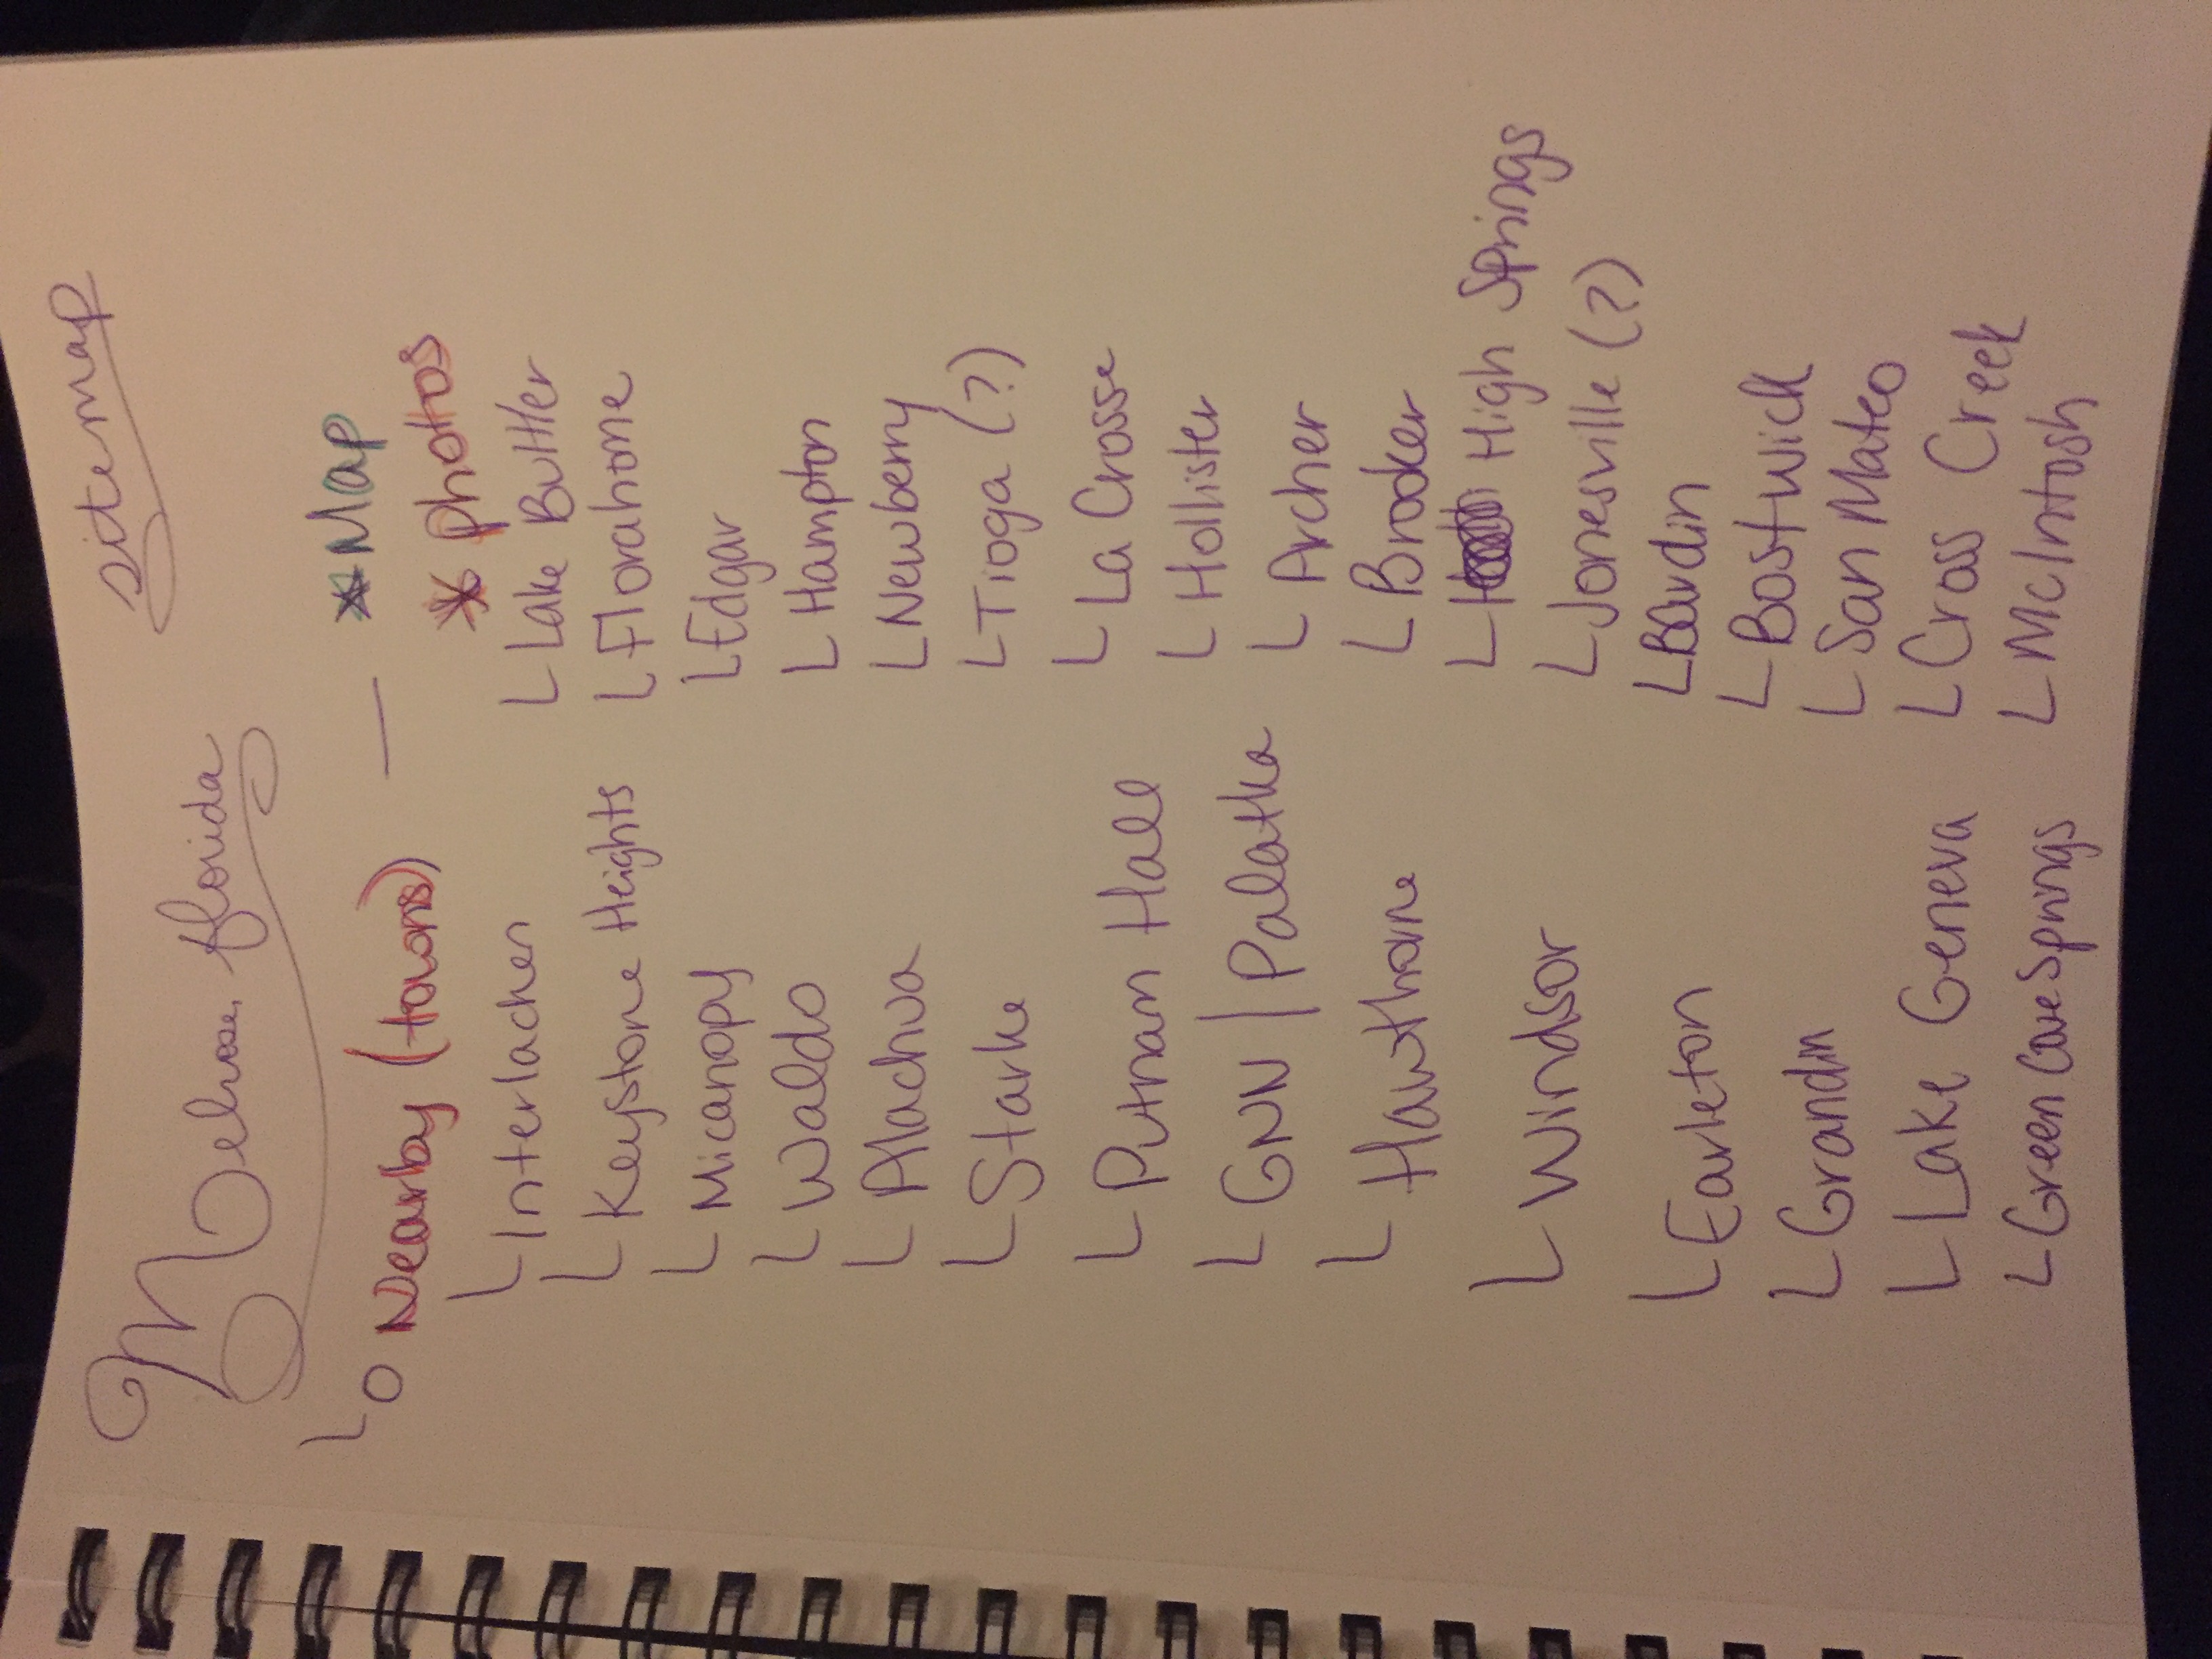 Melrose, florida
sitemap
Nearby (towns) — * Map
* photos
Interlachen
Keystone Heights
Micanopy
Waldo
Alachua
Starke
Putnam Hall
GNV | Palatka
Hawthorne
Windsor
Earleton
Grandin
Lake Geneva
Green Cove Springs
Lake Butler
Florahome
Edgar
Hampton
Newberry
Tioga (?)
La Crosse
Hollister
Archer
Brooker
High Springs
Jonesville (?)
Bardin
Bostwick
San Mateo
Cross Creek
McIntosh